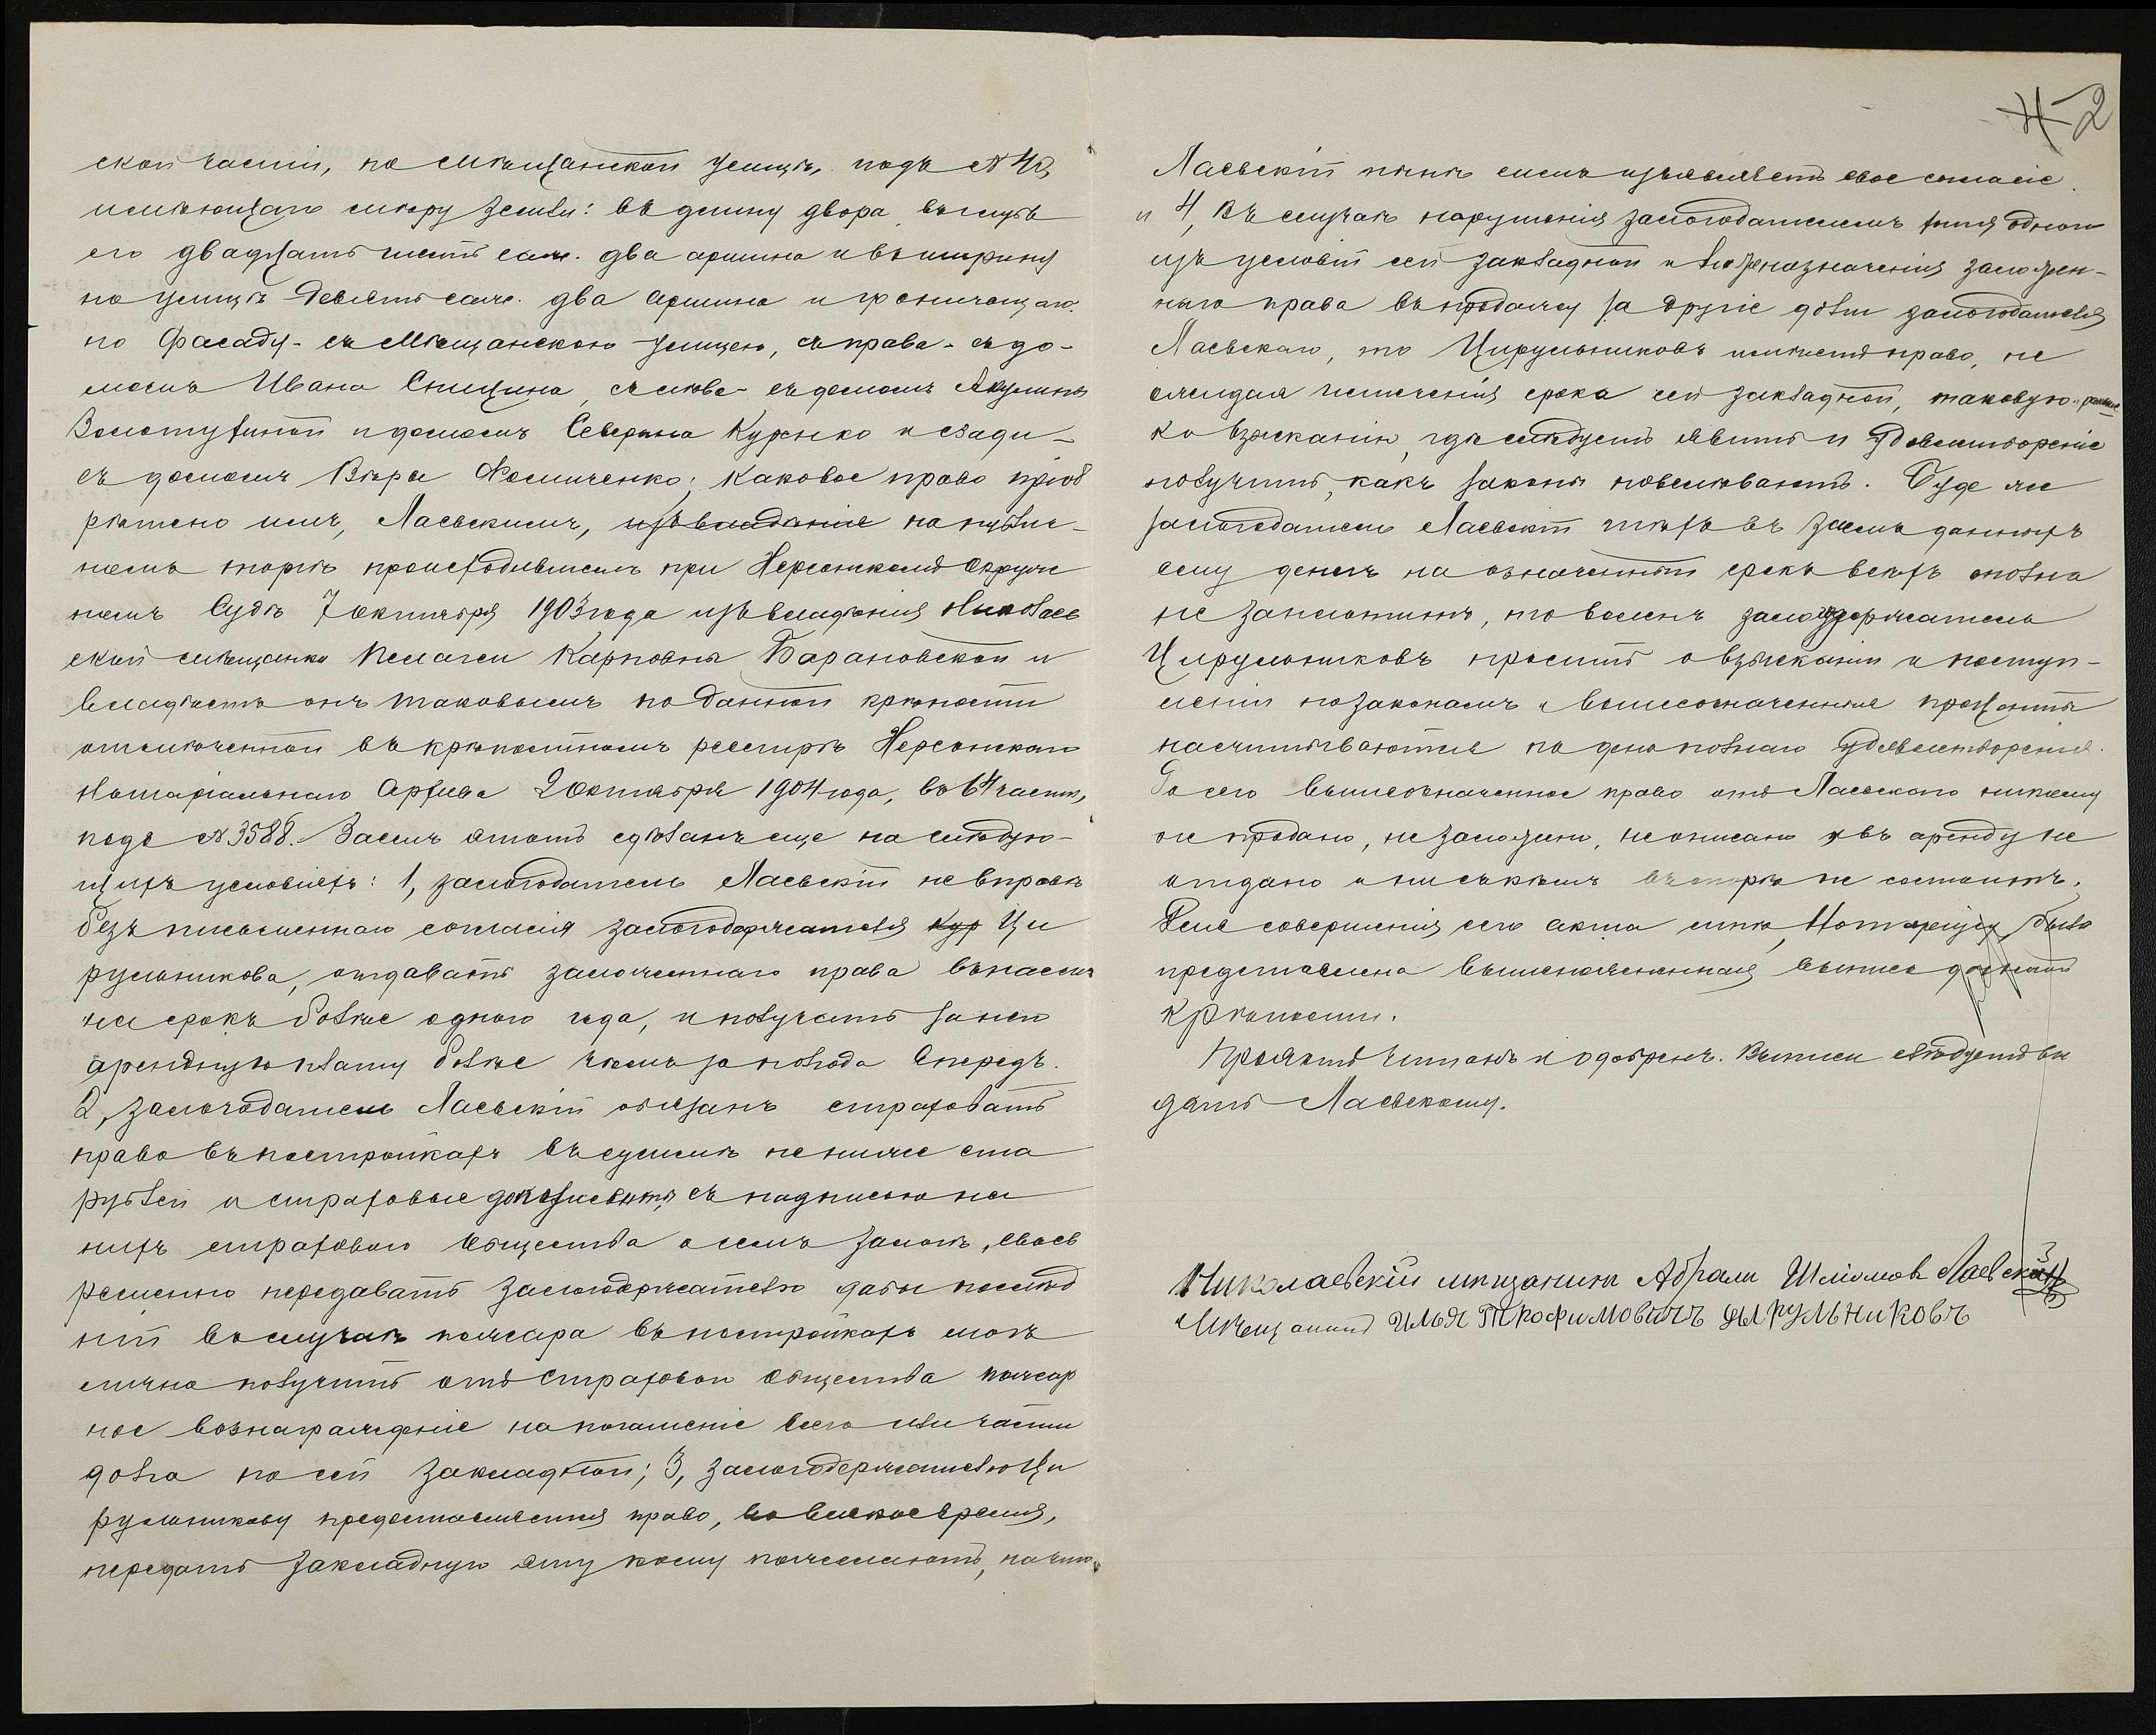 ской части, по Мѣщанской улицѣ, подъ №
имѣющаго мѣру земли: въ длину двора, въ глубь
его двадцать шесть саж. два аршина и въ ширину
по улицѣ девять саж. два аршина и граничащаго:
по фасаду - съ Мѣщанскою улицею, справа - съ до-
момъ Ивана Спицина, слѣва - съ домомъ Акулины
Золотухиной и домомъ Северина Куренко и сзади -
съ домомъ Вѣры Фомиченко; каковое право пріоб
рѣтено имъ, Лаевскимъ, изъ владѣнія на публич-
номъ торгѣ происходившемъ при Херсонскомъ Окруж
номъ Судѣ 7 октября 1903 года изъ владѣнія Николаев
ской мѣщанки Пелагеи Карповны Барановской и
владѣетъ онъ таковымъ по данной крѣпости
отмѣченной въ крѣпостномъ реестрѣ Херсонскаго
Нотаріальнаго Архива 2 октября 1904 года, въ 64 части,
подъ № 3588. Заемъ этотъ сдѣланъ еще на слѣдую-
щихъ условіяхъ: 1, залогодатель Лаевскій не вправѣ
безъ письменнаго согласія залогодержателя Кур Ци
рульникова, отдавать заложеннаго права въ наемъ
на срокъ болѣе одного года, и получать за него
арендную плату болѣе чѣмъ за полгода впередъ.
2, залогодатель Лаевскій обязанъ страховать
право въ постройкахъ въ суммѣ не ниже ста
рублей и страховые документы, съ надписью на
нихъ страхового Общества о семъ залогѣ, своев
ременно передавать залогодержателю дабы послѣд
ній въ случаѣ пожара въ постройкахъ могъ
лично получить отъ Страхового Общества пожар
ное вознагражденіе на погашеніе всего или части
долга по сей закладной; 3, залогодержателю Ци
рульникову предоставляется право, во всякое время,
передать закладную эту кому пожелаетъ, на что
2
Лаевскій нынѣ симъ изъявляетъ свое согласіе.
и 4, Въ случаѣ нарушенія залогодателемъ хотя одного
изъ условій сей закладной и назначенія заложен-
наго права въ продажу за другіе долги залогодателя
Лаевскаго, то Цирульниковъ имѣетъ право, не
ожидая истеченія срока сей закладной, таковую
ко взысканію, гдѣ слѣдуетъ явить и удовлетвореніе
получить, какъ законы повелѣваютъ. Буде же
залогодатель Лаевскій тѣхъ въ заемъ данныхъ
ему денегъ на означенный срокъ всѣхъ сполна
не заплотитъ, то воленъ залогодержатель
Цирульниковъ просить о взысканіи и поступ-
леніи по законамъ и вышеозначенные проценты
насчитываются по день полнаго удовлетворенія.
До сего вышеозначенное право отъ Лаевскаго никому
не продано, не заложено, не описано въ аренду не
отдано и ни съ кѣмъ въ спорѣ не состоитъ.
Для совершенія сего акта мнѣ, Нотаріусу, была
представлена вышепоименованная выпись данной
крѣпости.
Проектъ читанъ и одобренъ. Выпись слѣдуетъ вы
дать Лаевскому.
Николаевскій мѣщанинъ Абрамъ Шліомовъ Лаевскій
Мѣщанинъ Илья Трофимовичъ Цырульниковъ